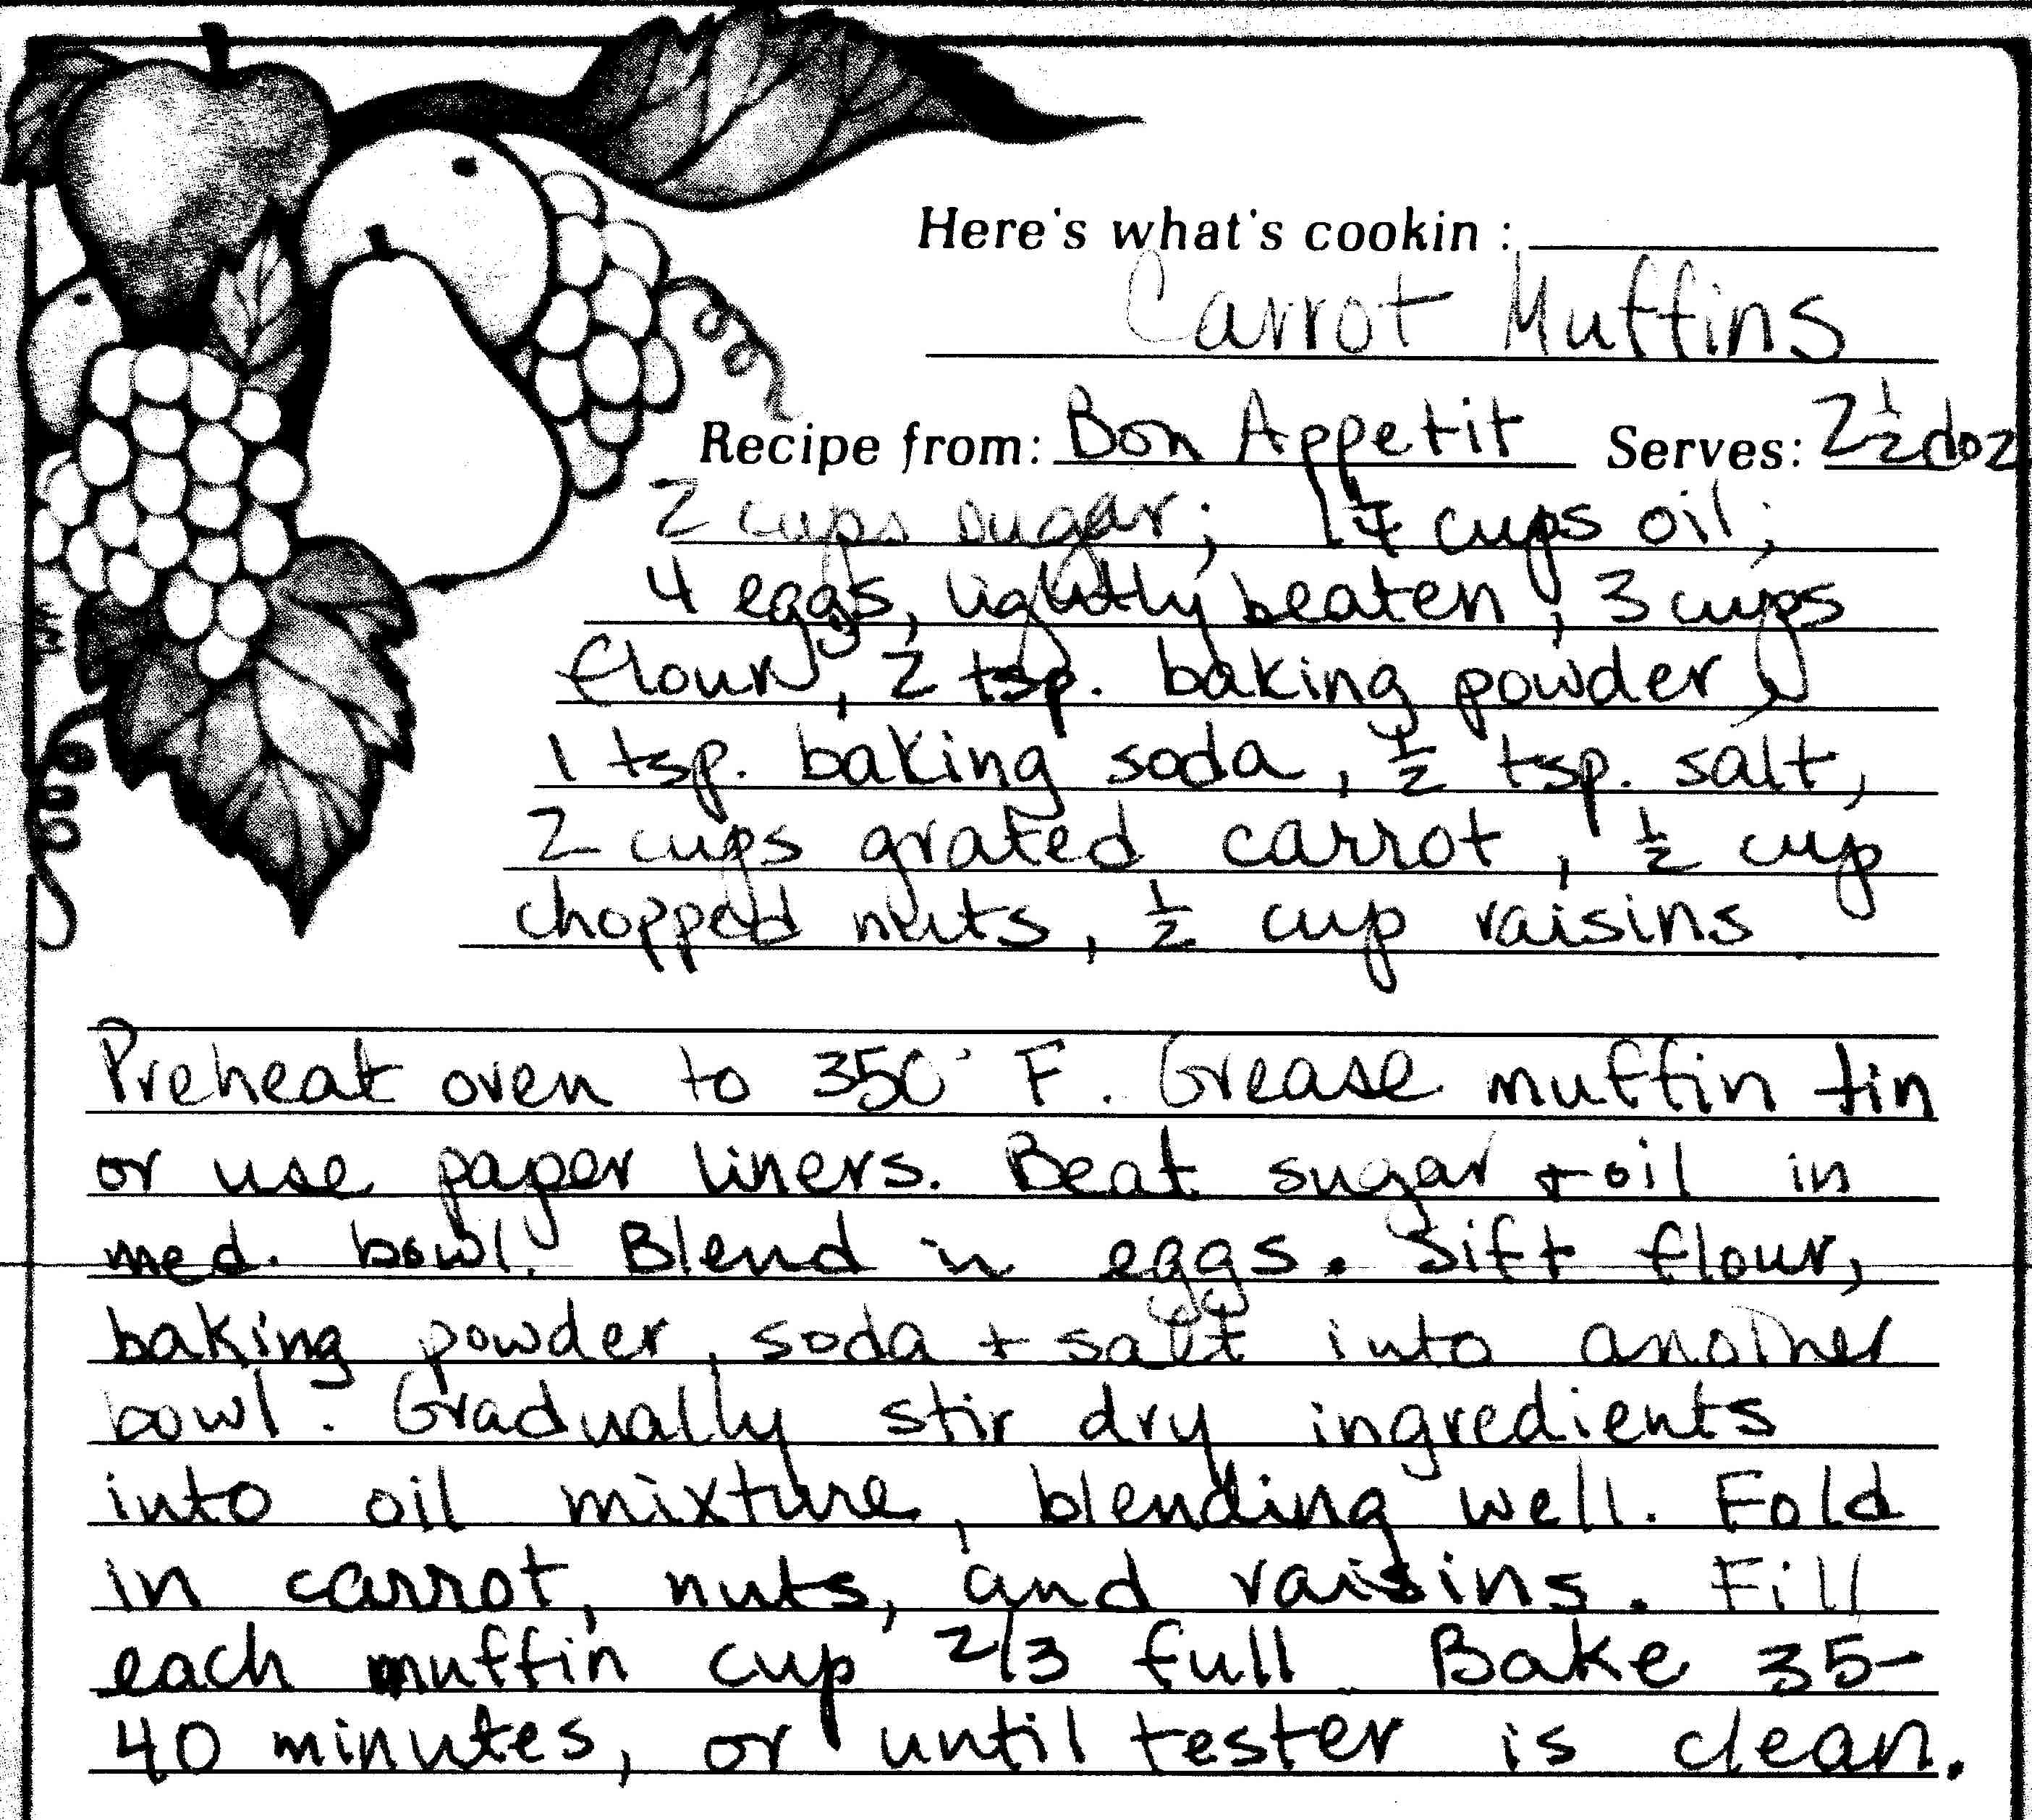 Here's what's cookin :
Carrot Muffins
Recipe from: Bon Appetit Serves: 2½ doz
2 cups sugar; 1¼ cups oil;
4 eggs, lightly beaten; 3 cups
flour, 2 tsp. baking powder,
1 tsp. baking soda, ½ tsp. salt,
2 cups grated carrot, ½ cup
chopped nuts, ½ cup raisins.
Preheat oven to 350° F. Grease muffin tin
or use paper liners. Beat sugar + oil in
med. bowl. Blend in eggs. Sift flour,
baking powder, soda + salt into another
bowl. Gradually stir dry ingredients
into oil mixture, blending well. Fold
in carrot, nuts, and raisins. Fill
each muffin cup 2/3 full. Bake 35-
40 minutes, or until tester is clean.